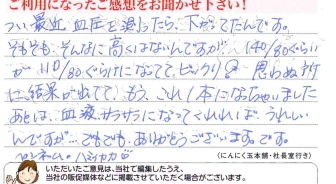 ご利用になったご感想をお聞かせ下さい!
つい最近 血圧を測ったら、下がってたんです。
そもそも、そんなに高くはないんですが、140/80ぐらい
が110/80ぐらいになってて、ビックリ! 思わぬ所
に結果が出てて、もう、これ1本になっちゃいました
あとは、血液サラサラになってくれれば、うれしい
んですが…でもでも、ありがとうございます。です。
ペンネーム
(にんにく玉本舗・社長室行き)
いただいたご意見は、当社で編集したうえ、
当社の販促媒体などに掲載させていただく場合がございます。